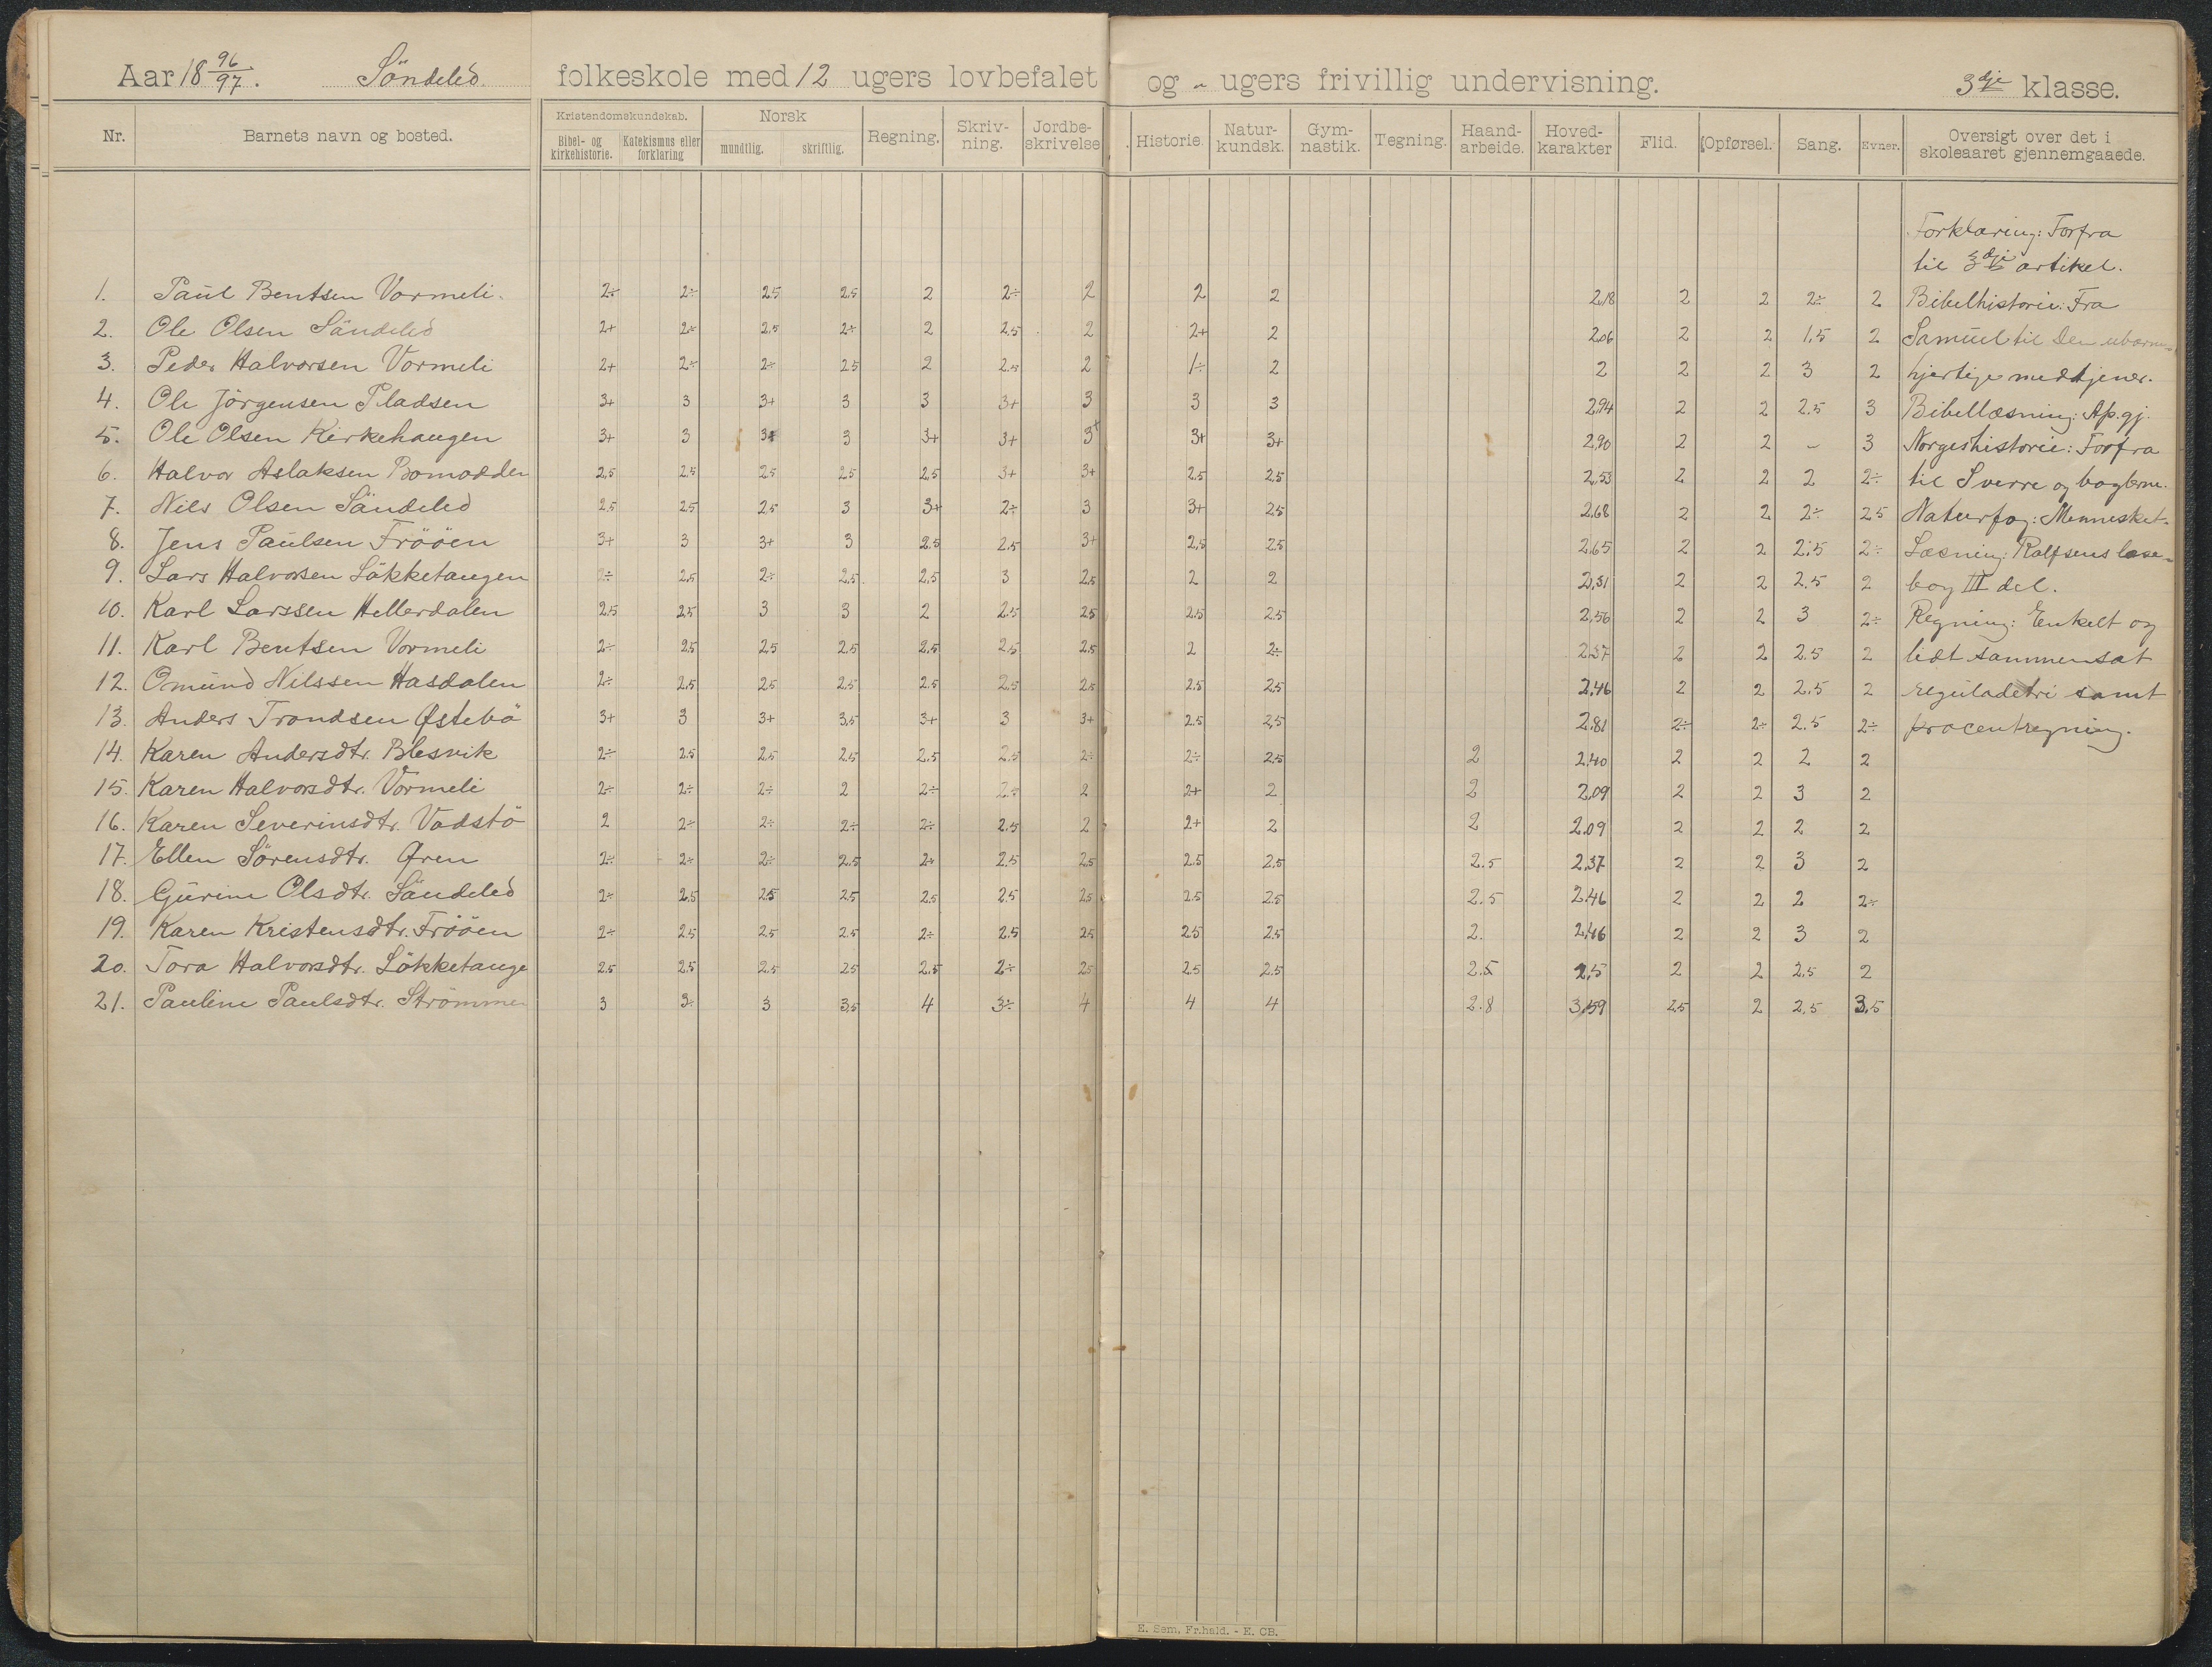 Aar 18 96/97. Söndeled folkeskole med 12 ugers lovbefalet og " ugers frivillig undervisning. 3dje klasse.
Nr. Barnets navn og bosted. Kristendomskundskab. Bibel- og kirkehistorie. Katekismus eller forklaring Norsk mundtlig. skriftlig. Regning. Skriv-ning. Jordbe-skrivelse Historie. Natur-kundsk. Gym-nastik. Tegning. Haand-arbeide. Hoved-karakter Flid. Opførsel. Sang. Evner. Oversigt over det i skoleaaret gjennemgaaede.
Forklaring: Forfra
til 3dje artikel.
1. Paul Bentsen Vormeli. 2÷ 2÷ 2.5 2.5 2 2÷ 2 2 2 2,18 2 2 2÷ 2 Bibelhistorie: Fra
2. Ole Olsen Söndeled 2+ 2÷ 2,5 2÷ 2 2.5 2 2+ 2 2,06 2 2 1,5 2 Samuel til Den ubarm-
3. Peder Halvorsen Vormeli 2+ 2÷ 2÷ 2.5 2 2.5 2 1÷ 2 2 2 2 3 2 hjertige medtjener.
4. Ole Jörgensen Pladsen 3+ 3 3+ 3 3 3+ 3 3 3 2,94 2 2 2.5 3 Bibellæsning: Ap.gj.
5. Ole Olsen Kirkehaugen 3+ 3 3+ 3 3+ 3+ 3+ 3+ 3+ 2,90 2 2 – 3 Norgeshistorie: Forfra
6. Halvor Aslaksen Bomodden 2,5 2.5 2.5 2.5 2,5 3+ 3+ 2.5 2.5 2,53 2 2 2 2÷ til Sverre og baglerne.
7. Nils Olsen Söndeled 2,5 2.5 2,5 3 3+ 2÷ 3 3+ 2.5 2,68 2 2 2÷ 2.5 Naturfag: Mennesket.
8. Jens Paulsen Frööen 3+ 3 3+ 3 2.5 2.5 3+ 2,5 2.5 2,65 2 2 2,5 2÷ Læsning: Rolfsens læse-
9. Lars Halvorsen Lökketangen 2÷ 2,5 2÷ 2,5 2,5 3 2,5 2 2 2,31 2 2 2.5 2 bog III del.
10. Karl Larssen Hellerdalen 2.5 2,5 3 3 2 2.5 2.5 2.5 2.5 2,56 2 2 3 2÷ Regning: Enkelt og
11. Karl Bentsen Vormeli 2÷ 2,5 2.5 2,5 2,5 2,5 2,5 2 2÷ 2,37 2 2 2.5 2 lidt sammensat
12. Omund Nilssen Hasdalen 2÷ 2,5 2.5 2,5 2.5 2,5 2.5 2.5 2.5 2,46 2 2 2.5 2 reguladetri samt
13. Anders Trondsen Østebö 3+ 3 3+ 3,5 3+ 3 3+ 2.5 2,5 2,81 2÷ 2÷ 2.5 2÷ procentregning.
14. Karen Andersdtr. Blesvik 2÷ 2.5 2,5 2.5 2,5 2.5 2÷ 2÷ 2,5 2 2,40 2 2 2 2
15. Karen Halvorsdtr. Vormeli 2÷ 2÷ 2÷ 2 2÷ 2÷ 2 2+ 2 2 2,09 2 2 3 2
16. Karen Severinsdtr. Vadstö 2 2÷ 2÷ 2÷ 2÷ 2.5 2 2+ 2 2 2,09 2 2 2 2
17. Ellen Sörensdtr. Øren 2÷ 2÷ 2÷ 2.5 2÷ 2,5 2,5 2.5 2.5 2.5 2,37 2 2 3 2
18. Gurine Olsdtr. Söndeled 2÷ 2,5 2.5 2.5 2.5 2.5 2.5 2.5 2.5 2.5 2,46 2 2 2 2÷
19. Karen Kristensdtr. Frööen 2÷ 2.5 2.5 2.5 2÷ 2.5 2.5 2.5 2.5 2. 2,46 2 2 3 2
20. Tora Halvorsdtr. Lökketange 2.5 2.5 2.5 2.5 2.5 2÷ 2.5 2.5 2.5 2.5 2,5 2 2 2,5 2
21. Pauline Paulsdtr. Strömmen 3 3÷ 3 3,5 4 3÷ 4 4 4 2.8 3,59 2,5 2 2,5 3,5
E. Sem, Fr.hald. - E. CB.